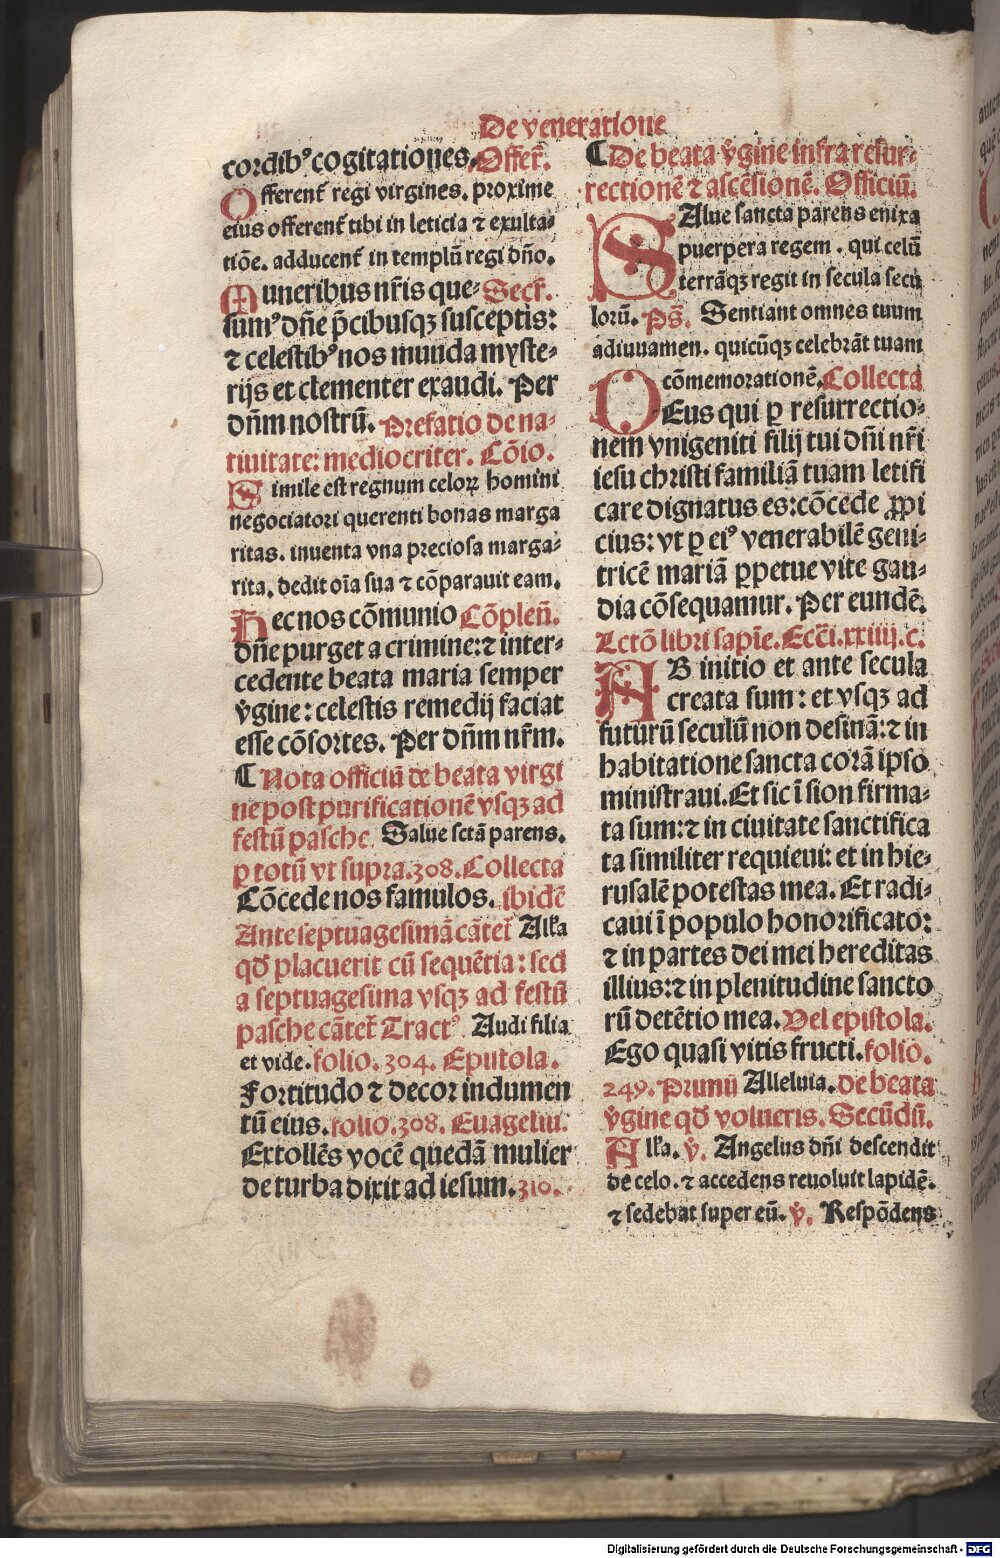 De veneratione
cordibꝰ cogitationes. Offert̄.
Offerent̄ regi virgines. proxime
eius offerent̄ tibi in leticia ⁊ exulta-
tiōe. adducent̄ in templū regi dn̄o.
Muneribus nr̄is que- Secr̄.
sumꝰ dn̄e p̄cibusqꝫ susceptis:
⁊ celestibꝰ nos munda myste-
rijs et clementer exaudi. Per
dn̄m nostrū. Prefatio de na-
tiuitate: mediocriter. Cōio.
Simile est regnum celoꝝ homini
negociatori querenti bonas marga
ritas. inuenta vna preciosa marga-
rita. dedit oīa sua ⁊ cōparauit eam.
Hec nos cōmunio Cōplen̄.
dn̄e purget a crimine: ⁊ inter-
cedente beata maria semper
v̄gine: celestis remedij faciat
esse cōsortes. Per dn̄m nr̄m.
¶ Nota officiū de beata virgi
ne post purificationē vsqꝫ ad
festū pasche. Salue sctā parens.
ꝑ totū vt supra. 308. Collecta
Cōcede nos famulos. ibidē
Ante septuagesimā cātet̄ Alľa
qd̄ placuerit cū sequētia: sed
a septuagesima vsqꝫ ad festū
pasche cātet̄ Tractꝰ. Audi filia
et vide. folio. 304. Epistola.
Fortitudo ⁊ decor indumen
tū eius. folio. 308. Euageliū.
Extollēs vocē quedā mulier
de turba dixit ad iesum. 310.
¶ De beata v̄gine infra resur-
rectionē ⁊ ascēsionē. Officiū.
SAlue sancta parens enixa
puerpera regem. qui celū
terrāqꝫ regit in secula secu
lorū. Ps̄. Sentiant omnes tuum
adiuuamen. quicūqꝫ celebrāt tuam
cōmemorationē. Collecta
DEus qui ꝑ resurrectio-
nem vnigeniti filij tui dn̄i nr̄i
iesu christi familiā tuam letifi
care dignatus es: cōcede ꝓpi
cius: vt ꝑ eiꝰ venerabilē geni-
tricē mariā ꝑpetue vite gau-
dia cōsequamur. Per eundē.
Lctō libri sapīe. Ecc̄i. xxiiij. c.
AB initio et ante secula
creata sum: et vsqꝫ ad
futurū seculū non desinā: ⁊ in
habitatione sancta corā ipso
ministraui. Et sic ī sion firma-
ta sum: ⁊ in ciuitate sanctifica
ta similiter requieui: et in hie-
rusalē potestas mea. Et radi-
caui ī populo honorificato:
⁊ in partes dei mei hereditas
illius: ⁊ in plenitudine sancto
rū detētio mea. Vel epistola.
Ego quasi vitis fructi. folio.
249. Primū Alleluia. de beata
v̄gine qd̄ volueris. Secūdū.
Alľa. v̄. Angelus dn̄i descendit
de celo. ⁊ accedens reuoluit lapidē.
⁊ sedebat super eū. v̄. Respōdens
Digitalisierung gefördert durch die Deutsche Forschungsgemeinschaft - DFG